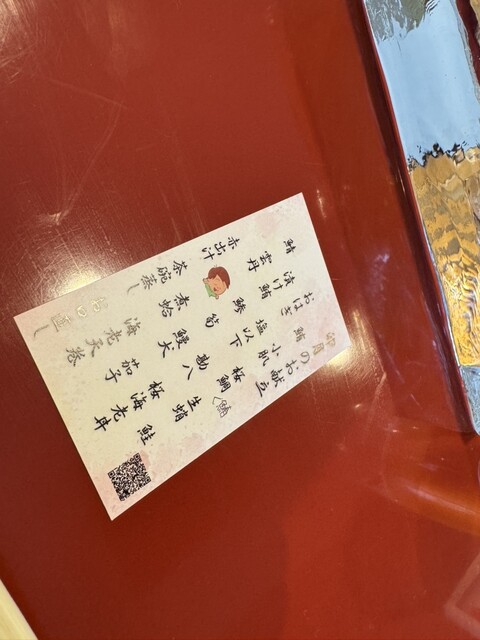 卯月のお献立
鮪 小肌 桜鯛 生蛸 鮭
おはぎ 塩以下 勘八 桜海老丼
漬け鮪 鯵 筍 鰻 茄子
鯖 雲丹 煮蛤 海老天巻
赤出汁 茶碗蒸し お口直し